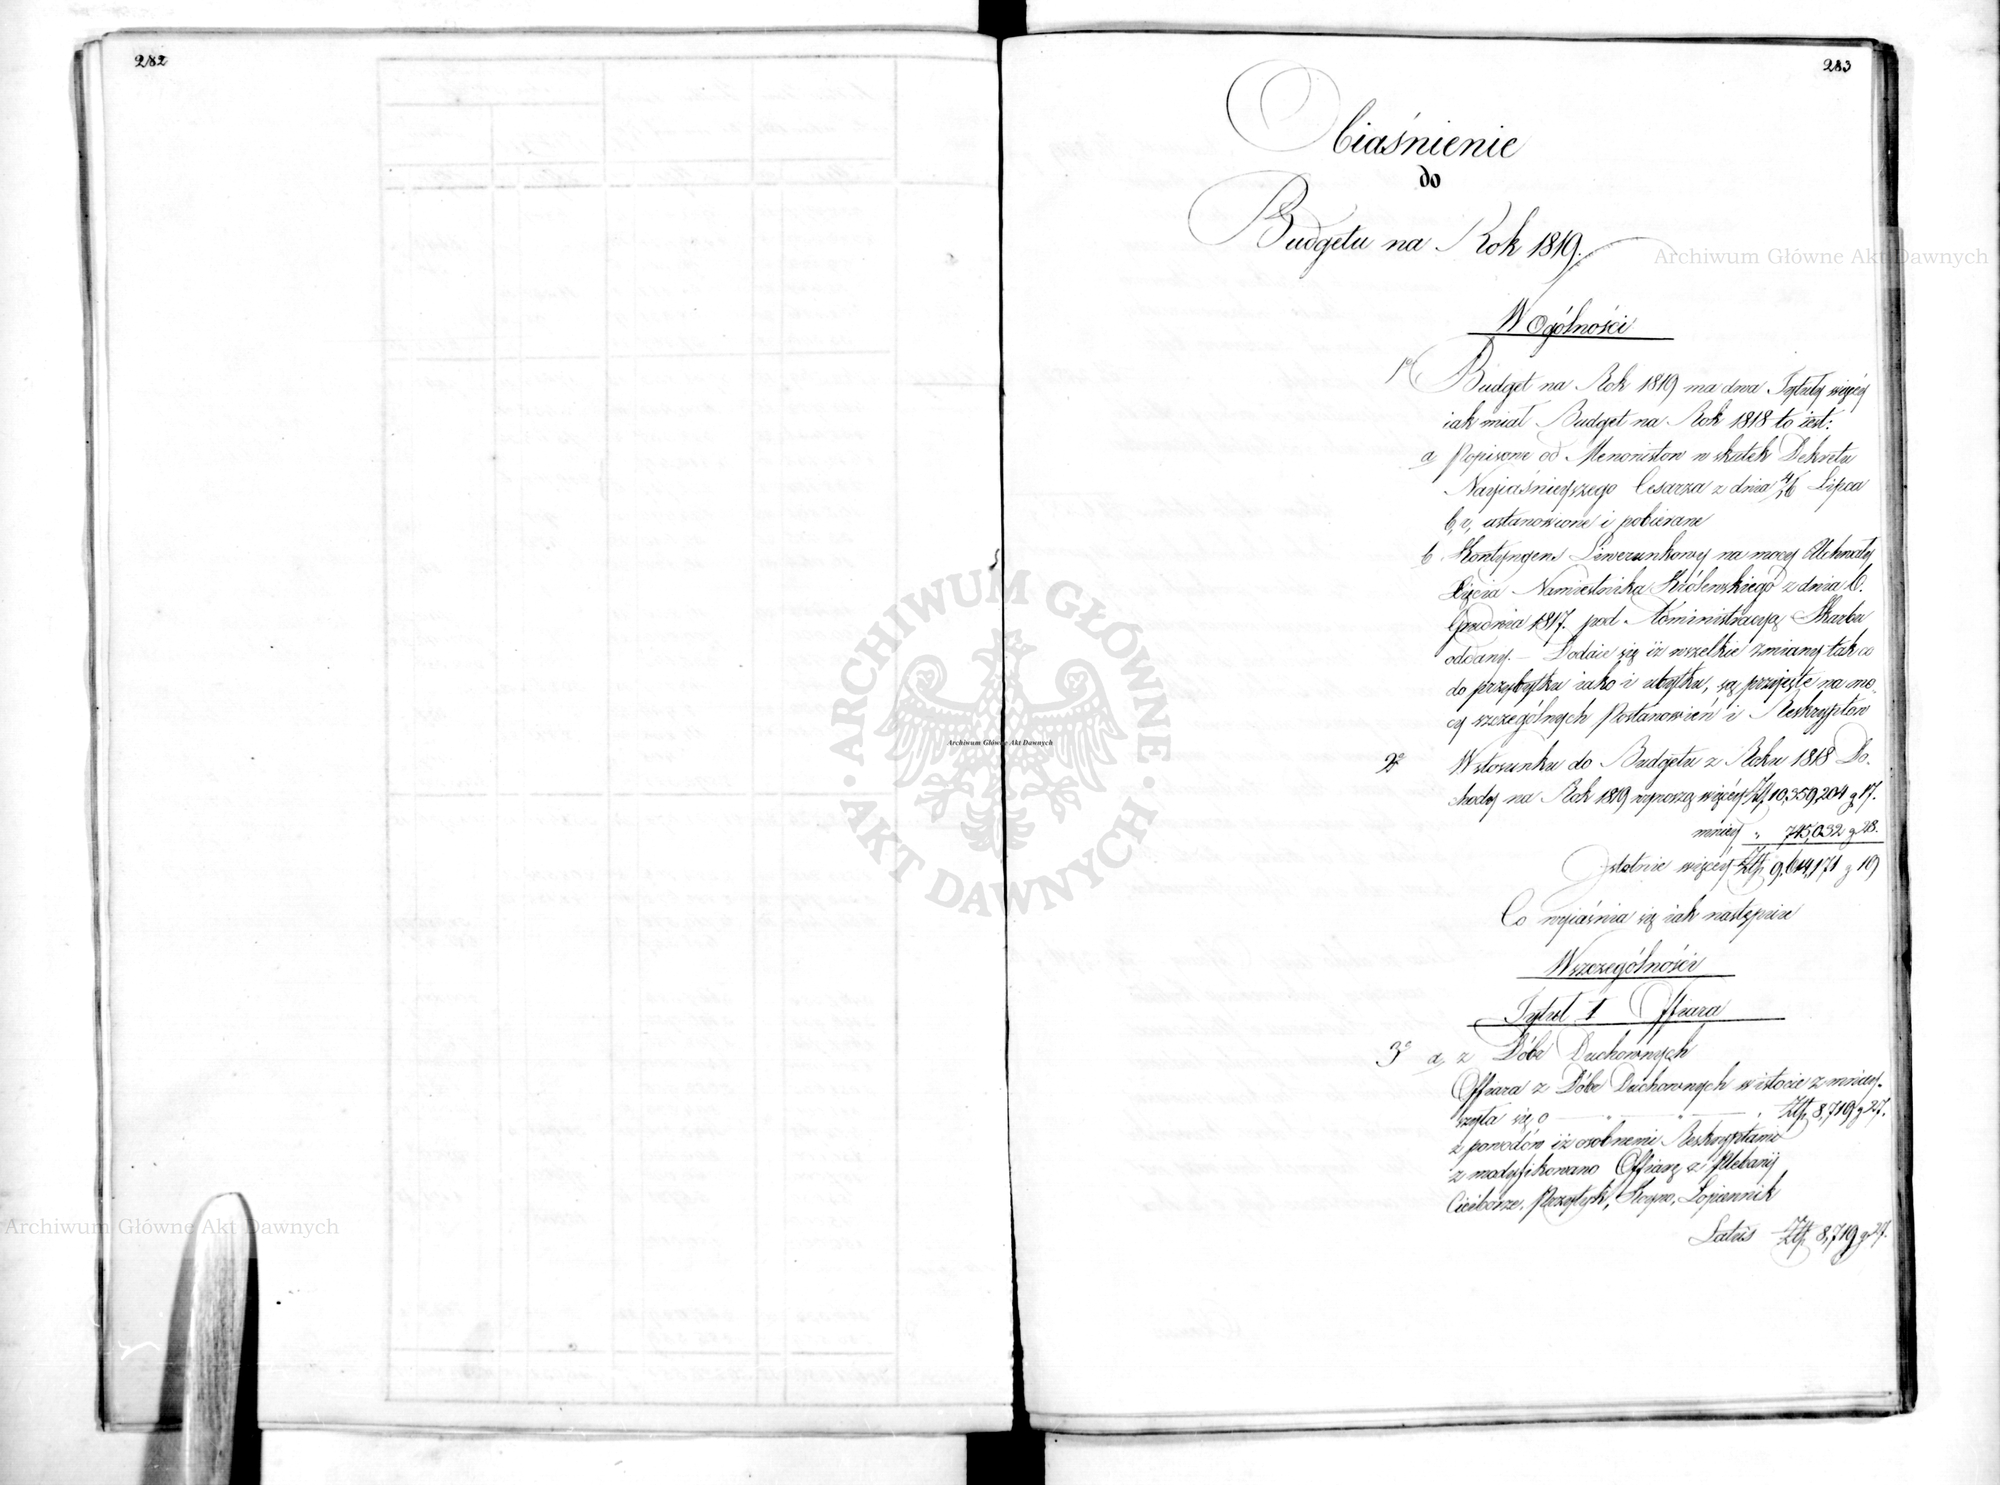 282
283
Obiaśnienie
do
Budgetu na Rok 1819.
W Ogólności
1o Budget na Rok 1819 ma dwa Tytuły więcéy
iak miał Budget na Rok 1818 to iest:
a, Popisowe od Menonistow w skutek Dekretu
Nayiaśnieyszego Cesarza z dnia 4/16 Lipca
b.r. ustanowione i pobierane
b. Kontyngens Liwerunkowy na mocy Uchwały
Xięcia Namiestnika Królewskiego z dnia 6.
Grudnia 1817. pod Administracyą Skarbu
oddany. — Dodaie się iż wszelkie zmiany tak co
do przybytku iako i ubytku, są przyięte na mo-
cy szczególnych Postanowień i Reskryptow
2o W stosunku do Budgetu z Roku 1818 Do-
chody na Rok 1819 wynoszą więcéy Złp 10,359,204 g 17.
mniéy „ 745,032 g 28.
Istotnie więcéy Złp 9,614,171 g 19
Co wyiaśnia się iak następuie
W szczególności
Tytuł I Offiara
3o a, z Dóbr Duchownych
Offiara z Dóbr Duchownych w istocie zmniey-
szyła się o — Złp 8,719 g 27.
z powodów iż osobnemi Reskryptami
zmodyfikowano Offiarę z Plebanij
Ciećborze, Przytyk, Łopiennik
Latus Złp 8,719 g 27.
Archiwum Główne Akt Dawnych
ARCHIWUM GŁÓWNE AKT DAWNYCH
Archiwum Główne Akt Dawnych
Archiwum Główne Akt Dawnych